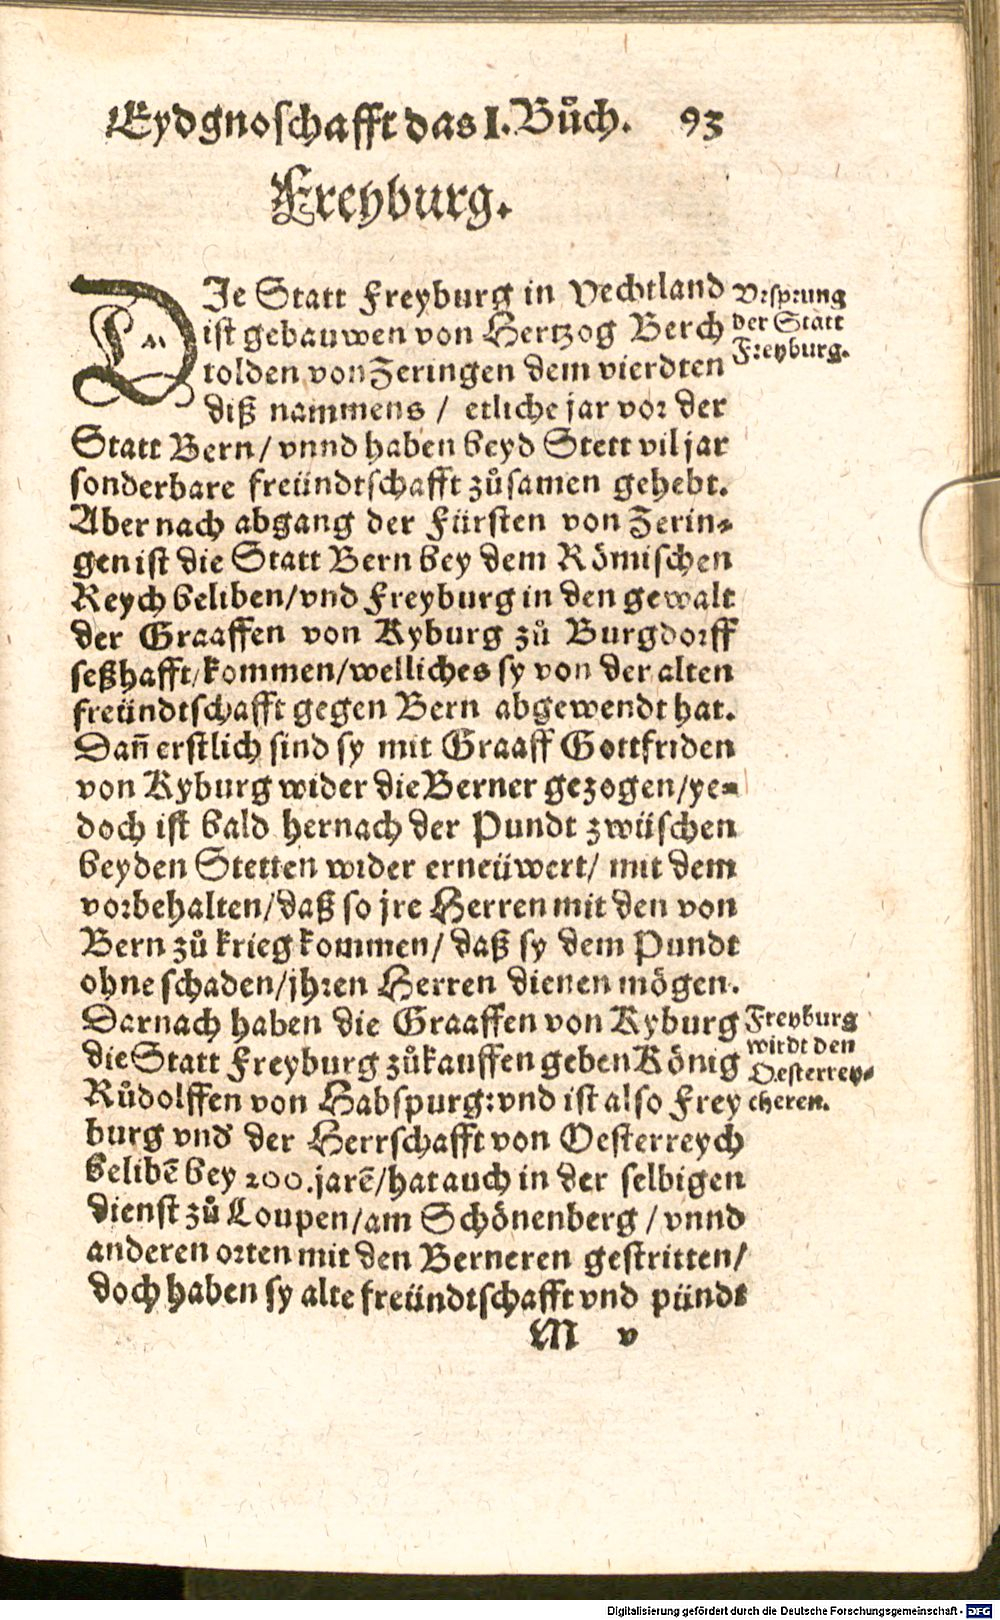 Eydgnoschafft das I. Bůch. 93
Freyburg.
DIe Statt Freyburg in Vechtland
ist gebauwen von Hertzog Berch
tolden von Zeringen dem vierdten
diß nammens / etliche jar vor der
Statt Bern / vnnd haben beyd Stett vil jar
sonderbare freündtschafft zůsamen gehebt.
Aber nach abgang der Fürsten von Zerin⸗
gen ist die Statt Bern bey dem Römischen
Reych beliben / vnd Freyburg in den gewalt
der Graaffen von Kyburg zů Burgdorff
seßhafft / kommen / welliches sy von der alten
freündtschafft gegen Bern abgewendt hat.
Dañ erstlich sind sy mit Graaff Gottfriden
von Kyburg wider die Berner gezogen / ye⸗
doch ist bald hernach der Pundt zwüschen
beyden Stetten wider erneüwert / mit dem
vorbehalten / daß so jre Herren mit den von
Bern zů krieg kommen / daß sy dem Pundt
ohne schaden / jhren Herren dienen mögen.
Darnach haben die Graaffen von Kyburg
die Statt Freyburg zůkauffen geben König
Růdolffen von Habspurg: vnd ist also Frey
burg vnd der Herrschafft von Oesterreych
belibē bey 200. jarē / hat auch in der selbigen
dienst zů Loupen / am Schönenberg / vnnd
anderen orten mit den Berneren gestritten /
doch haben sy alte freündtschafft vnd pündt
M v
Vrsprung
der Statt
Freyburg.
Freyburg
wirdt den
Oesterrey⸗
cheren.
Digitalisierung gefördert durch die Deutsche Forschungsgemeinschaft - DFG